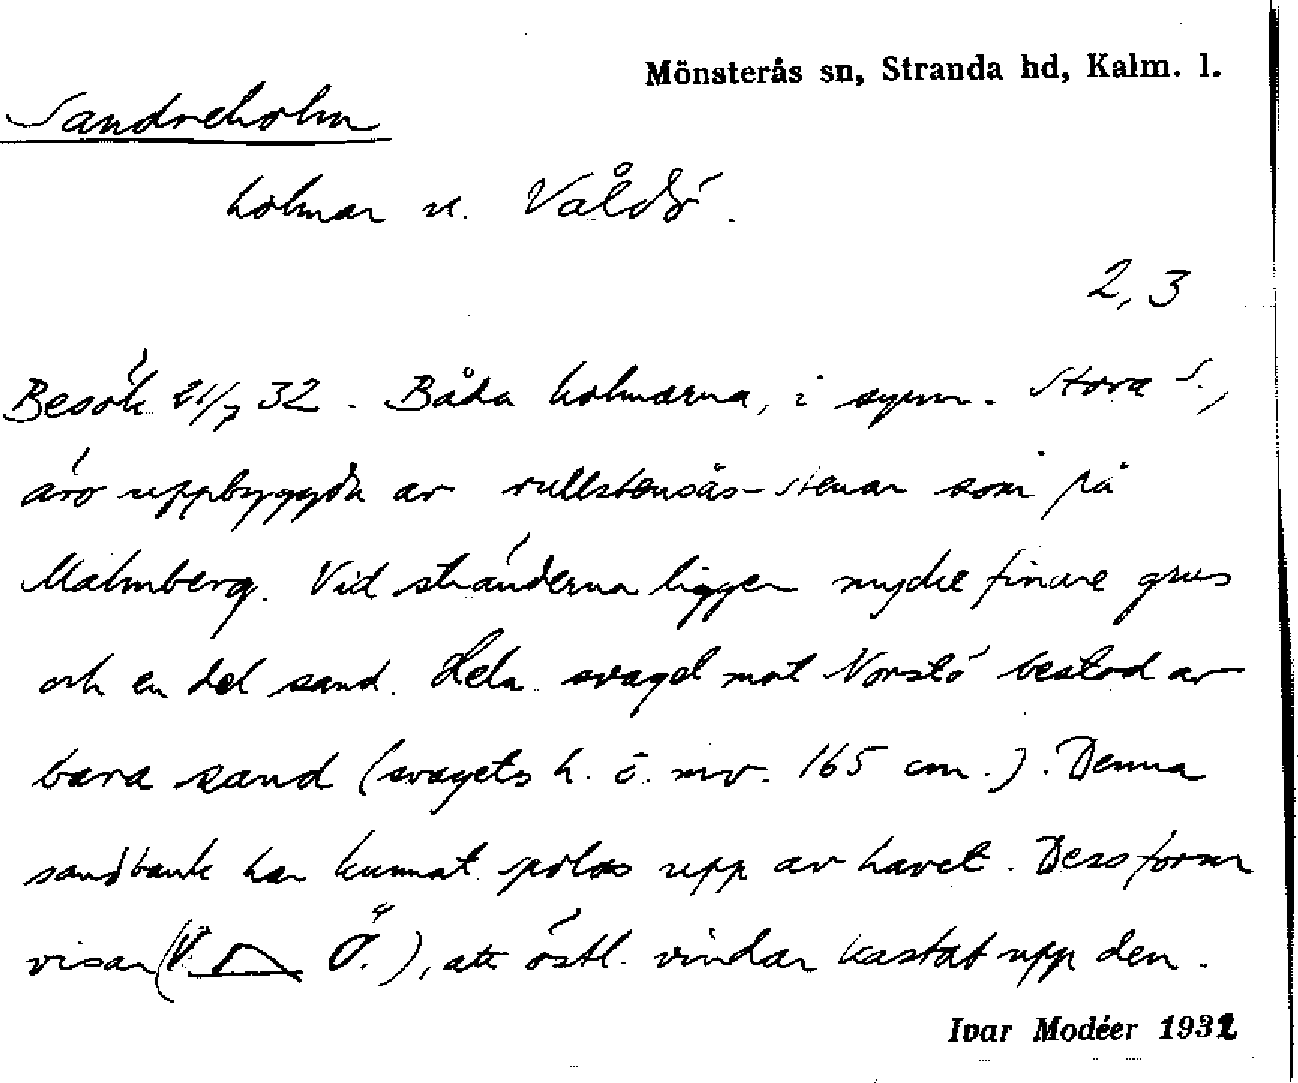 Mönsterås sn, Stranda hd, Kalm. l.
Sandreholm
holmar n. Valdö.
2, 3
Besök 21/7 32. Båda holmarna, i synn. Stora S.,
äro uppbyggda av rullstensås-stenar som på
Malmberg. Vid stränderna ligger mycke finare grus
och en del sand. Hela svaget mot Norstö bestod av
bara sand (svagets h. ö. mv. 165 cm.). Denna
sandbank har kunnat spolas upp av havet. Dess form
visar (V. Ö.), att östl. vindar kastat upp den.
Ivar Modéer 1932